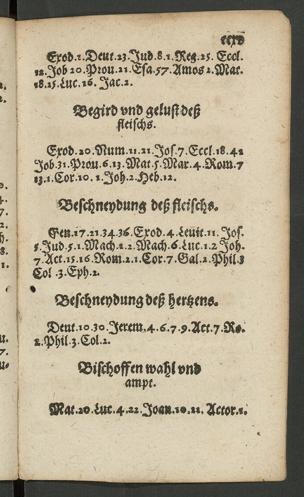 Exod.1.Deut.23.Jud.8.1.Reg.25. Eccl.
12.Job 20.Prou.21.Esa.57.Amos 2.Mat.
18.25.Luc.16. Jac.2.
Begird vnd gelust deß
fleischs.
Exod.20.Num.11.21.Jos.7.Eccl.18.42
Job.31.Prou.6.13.Mat.5.Mar.4.Rom.7
13.1.Cor.10.1.Joh.2.Heb.12.
Beschneydung deß fleischs.
Gen.17.21.34.36.Exod.4.Leuit.11.Jos.
5.Jud.5.1.Mach.1.2.Mach.6.Luc.1.2.Joh.
7.Act.15.16.Rom.2.1.Cor.7.Gal.2.Phil.3
Col.3.Eph.2.
Beschneydung deß hertzens.
Deut.10.30.Jerem.4.6.7.9.Act.7.Ro.
2.Phil.3.Col.2.
Bischoffen wahl vnd
ampt.
Mat.20.Luc.4.22.Joan.10.21. Actor.1.